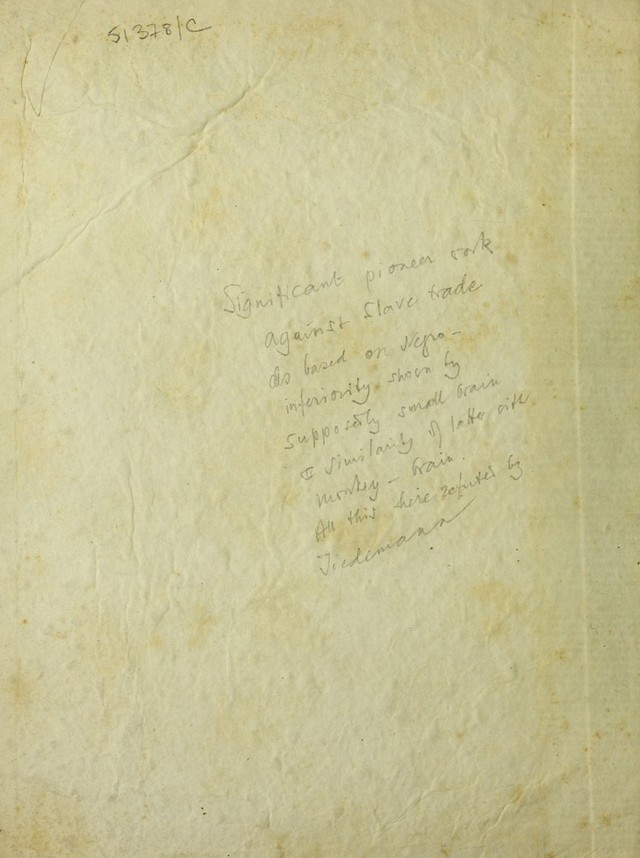 51378/C
Significant pioneer work
against Slave trade
As based on Negro-
inferiority shown by
supposedly small brain
& similarity of latter with
monkey - brain.
All this here refuted by
Tiedemann